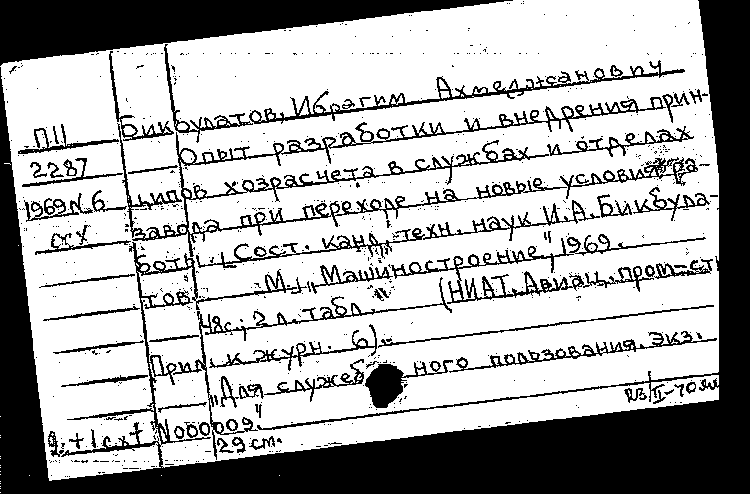 Бикбулатов, Ибрагим Ахмеджанович
П11 Опыт разработки и внедрения прин-
2287 ципов хозрасчета в службах и отделах
1969 N.6 завода при переходе на новые условия ра-
схх боты. [Сост. канд. техн. наук И.А. Бикбула-
тов. М., "Машиностроение", 1969.
48с.; 2 л. табл. (НИАТ. Авиац. пром-сть
Прил. к журн. 6).
"Для служебного пользования. экз.
N000009."
29 см.